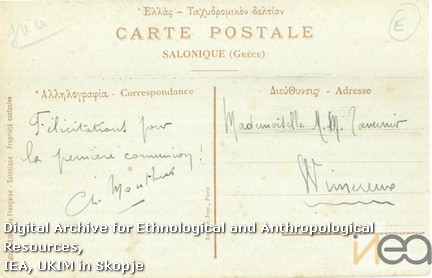 Grèce
E
Ἑλλὰς – Ταχυδρομικὸν δελτίον
CARTE POSTALE
SALONIQUE (GRÈCE)
Ἀλληλογραφία - Correspondance
Διεύθυνσις - Adresse
Félicitations pour
la première communion!
Ch.
Mademoiselle M. M. Tavernier
Wimereux
Française - Salonique - Propriété exclusive
Paris
Digital Archive for Ethnological and Anthropological
Resources,
IEA, UKIM in Skopje
iea